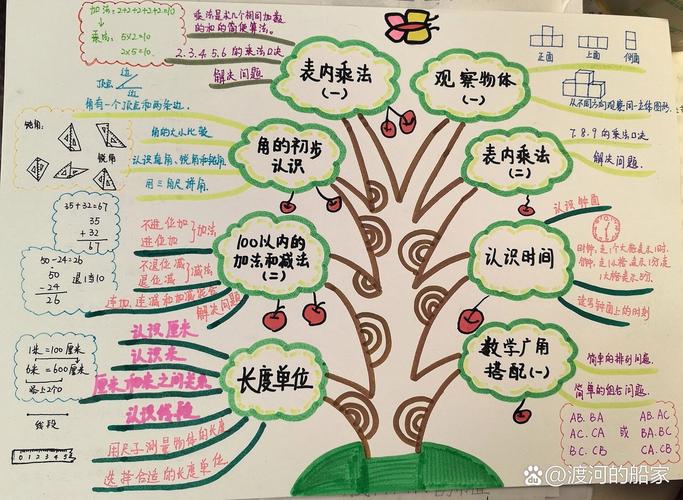 加法:2+2+2+2+2=10
乘法:5×2=10
2×5=10
乘法是求几个相同加数
的和的简便算法。
2.3.4.5.6的乘法口诀
解决问题
表内乘法
(一)
边
顶点
边
角有一个顶点和两条边。
钝角:
锐角
角的大小比较
认识直角、锐角和钝角.
用三角尺拼角.
角的初步
认识
35+32=67
35
+ 32
67
50-24=26
50 退1当10
-24
26
不进位加
进位加
加法
不退位减
退位减
减法
连加、连减和加减混合
解决问题
100以内的
加法和减法
(二)
1米=100厘米
6米=600厘米
线段
0 1 2 3 4 5
认识厘米
认识米
厘米和米之间关系
认识线段
用尺子测量物体的长度
选择合适的长度单位
长度单位
观察物体
(一)
正面 上面 侧面
从不同方向观察同一立体图形.
表内乘法
(二)
7.8.9的乘法口诀
解决问题.
认识时间
认识钟面
时针走1个大格表示1时.
读写钟面上的时刻
数学广角
搭配(一)
简单的排列问题.
简单的组合问题.
AB. BA AB. AC
AC. CA 或 BA. BC
BC. CB CA. CB
Bai百度 @渡河的船家